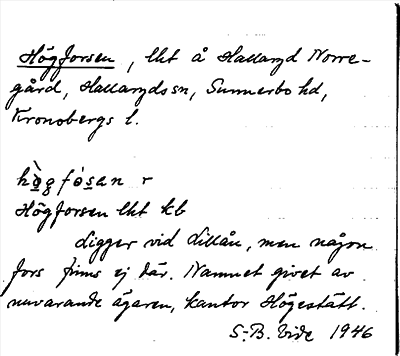 Högforsen, lht å Hallaryd Norre-
gård, Hallaryds sn, Sunnerbo hd,
Kronobergs l.
hὸ̀gfósan r
Högforsen lht kb
Ligger vid Lillån, men någon
fors finns ej där. Namnet givet av
nuvarande ägaren, kantor Högestätt.
S-B. Vide 1946